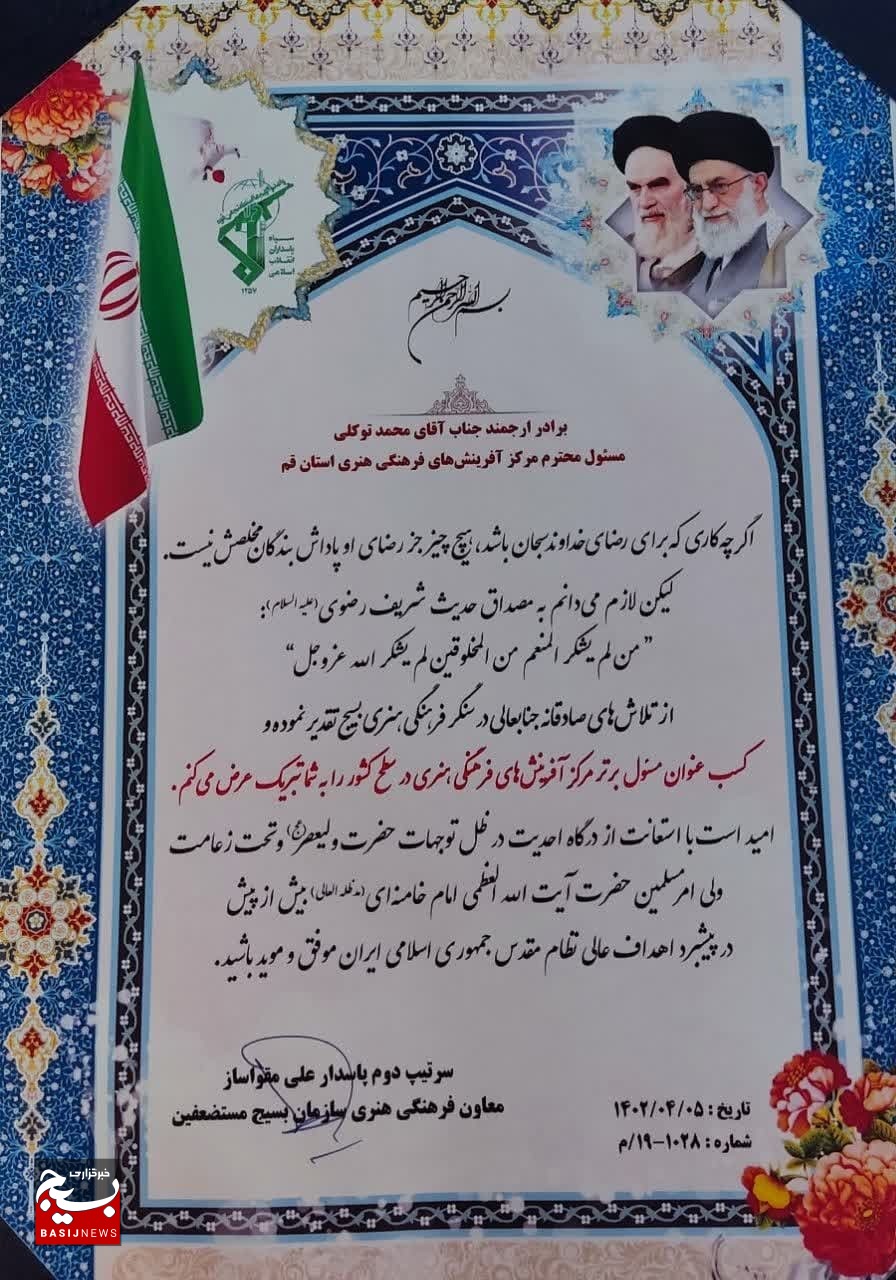 سپاه
پاسداران
انقلاب
اسلامی
۱۳۵۷
بسم الله الرحمن الرحیم
برادر ارجمند جناب آقای محمد توکلی
مسئول محترم مرکز آفرینش‌های فرهنگی هنری استان قم
اگر چه کاری که برای رضای خداوند سبحان باشد، هیچ چیز جز رضای او پاداش بندگان مخلصش نیست.
لیکن لازم می‌دانم به مصداق حدیث شریف رضوی (علیه السلام):
" من لم یشکر المنعم من المخلوقین لم یشکر الله عزوجل "
از تلاش‌های صادقانه جنابعالی در سنگر فرهنگی هنری بسیج تقدیر نموده و
کسب عنوان مسئول برتر مرکز آفرینش‌های فرهنگی هنری در سطح کشور را به شما تبریک عرض می‌کنم.
امید است با استعانت از درگاه احدیت در ظل توجهات حضرت ولیعصر (عج) و تحت زعامت
ولی امر مسلمین حضرت آیت الله العظمی امام خامنه‌ای (مدظله العالی) بیش از پیش
در پیشبرد اهداف عالی نظام مقدس جمهوری اسلامی ایران موفق و موید باشید.
سرتیپ دوم پاسدار علی مقواساز
معاون فرهنگی هنری سازمان بسیج مستضعفین
تاریخ : ۱۴۰۲/۰۴/۰۵
شماره : ۱۰۲۸-۱۹/م
خبرگزاری
بسیج
BASIJNEWS